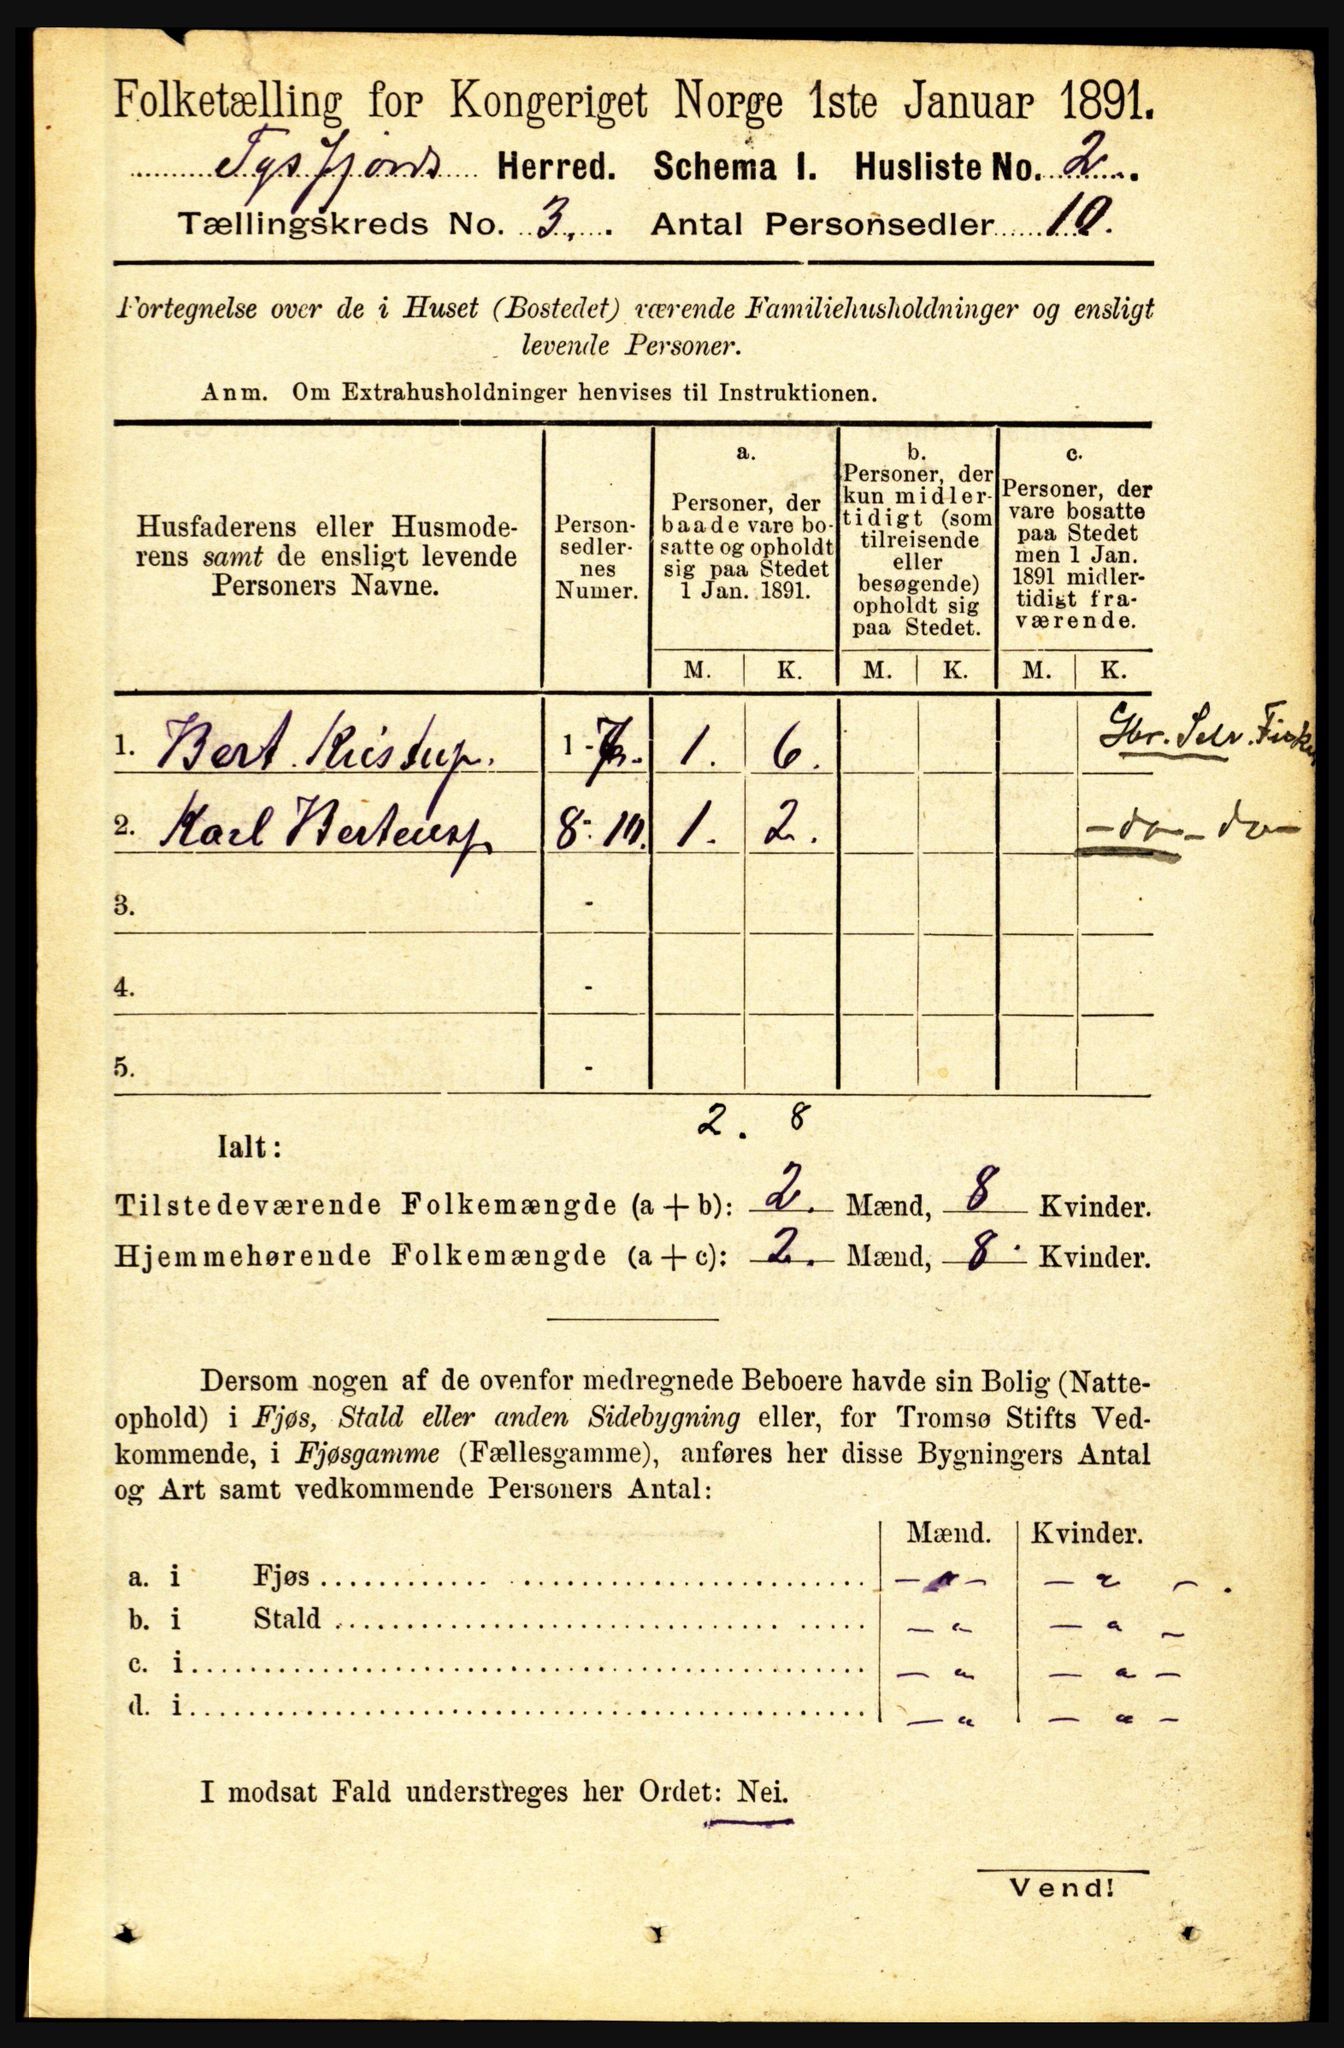 Folketælling for Kongeriget Norge 1ste Januar 1891.
Tysfjords Herred. Schema I. Husliste No. 2.
Tællingskreds No. 3. Antal Personsedler 10.
Fortegnelse over de i Huset (Bostedet) værende Familiehusholdninger og ensligt
levende Personer.
Anm. Om Extrahusholdninger henvises til Instruktionen.
Husfaderens eller Husmode-
rens samt de ensligt levende
Personers Navne.
Person-
sedler-
nes
Numer.
a.
Personer, der
baade vare bo-
satte og opholdt
sig paa Stedet
1 Jan. 1891.
b.
Personer, der
kun midler-
tidigt (som
tilreisende
eller
besøgende)
opholdt sig
paa Stedet.
c.
Personer, der
vare bosatte
paa Stedet
men 1 Jan.
1891 midler-
tidigt fra-
værende.
M. K. M. K. M. K.
1. Bert Kristup. 1 - 7. 1. 6. Gbr. Selv. Fisker
2. Karl Bertensp. 8 - 10. 1. 2. - do - do -
3. -
4. -
5. -
2. 8
Ialt:
Tilstedeværende Folkemængde (a + b): 2. Mænd, 8 Kvinder.
Hjemmehørende Folkemængde (a + c): 2. Mænd, 8. Kvinder.
Dersom nogen af de ovenfor medregnede Beboere havde sin Bolig (Natte-
ophold) i Fjøs, Stald eller anden Sidebygning eller, for Tromsø Stifts Ved-
kommende, i Fjøsgamme (Fællesgamme), anføres her disse Bygningers Antal
og Art samt vedkommende Personers Antal:
Mænd. Kvinder.
a. i Fjøs - " - - " -
b. i Stald - " - " -
c. i - " - " -
d. i - " - " -
I modsat Fald understreges her Ordet: Nei.
Vend!